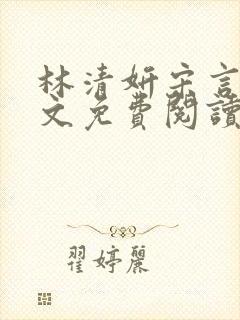 林清妍宋言
文免費閱讀
翟婷麗